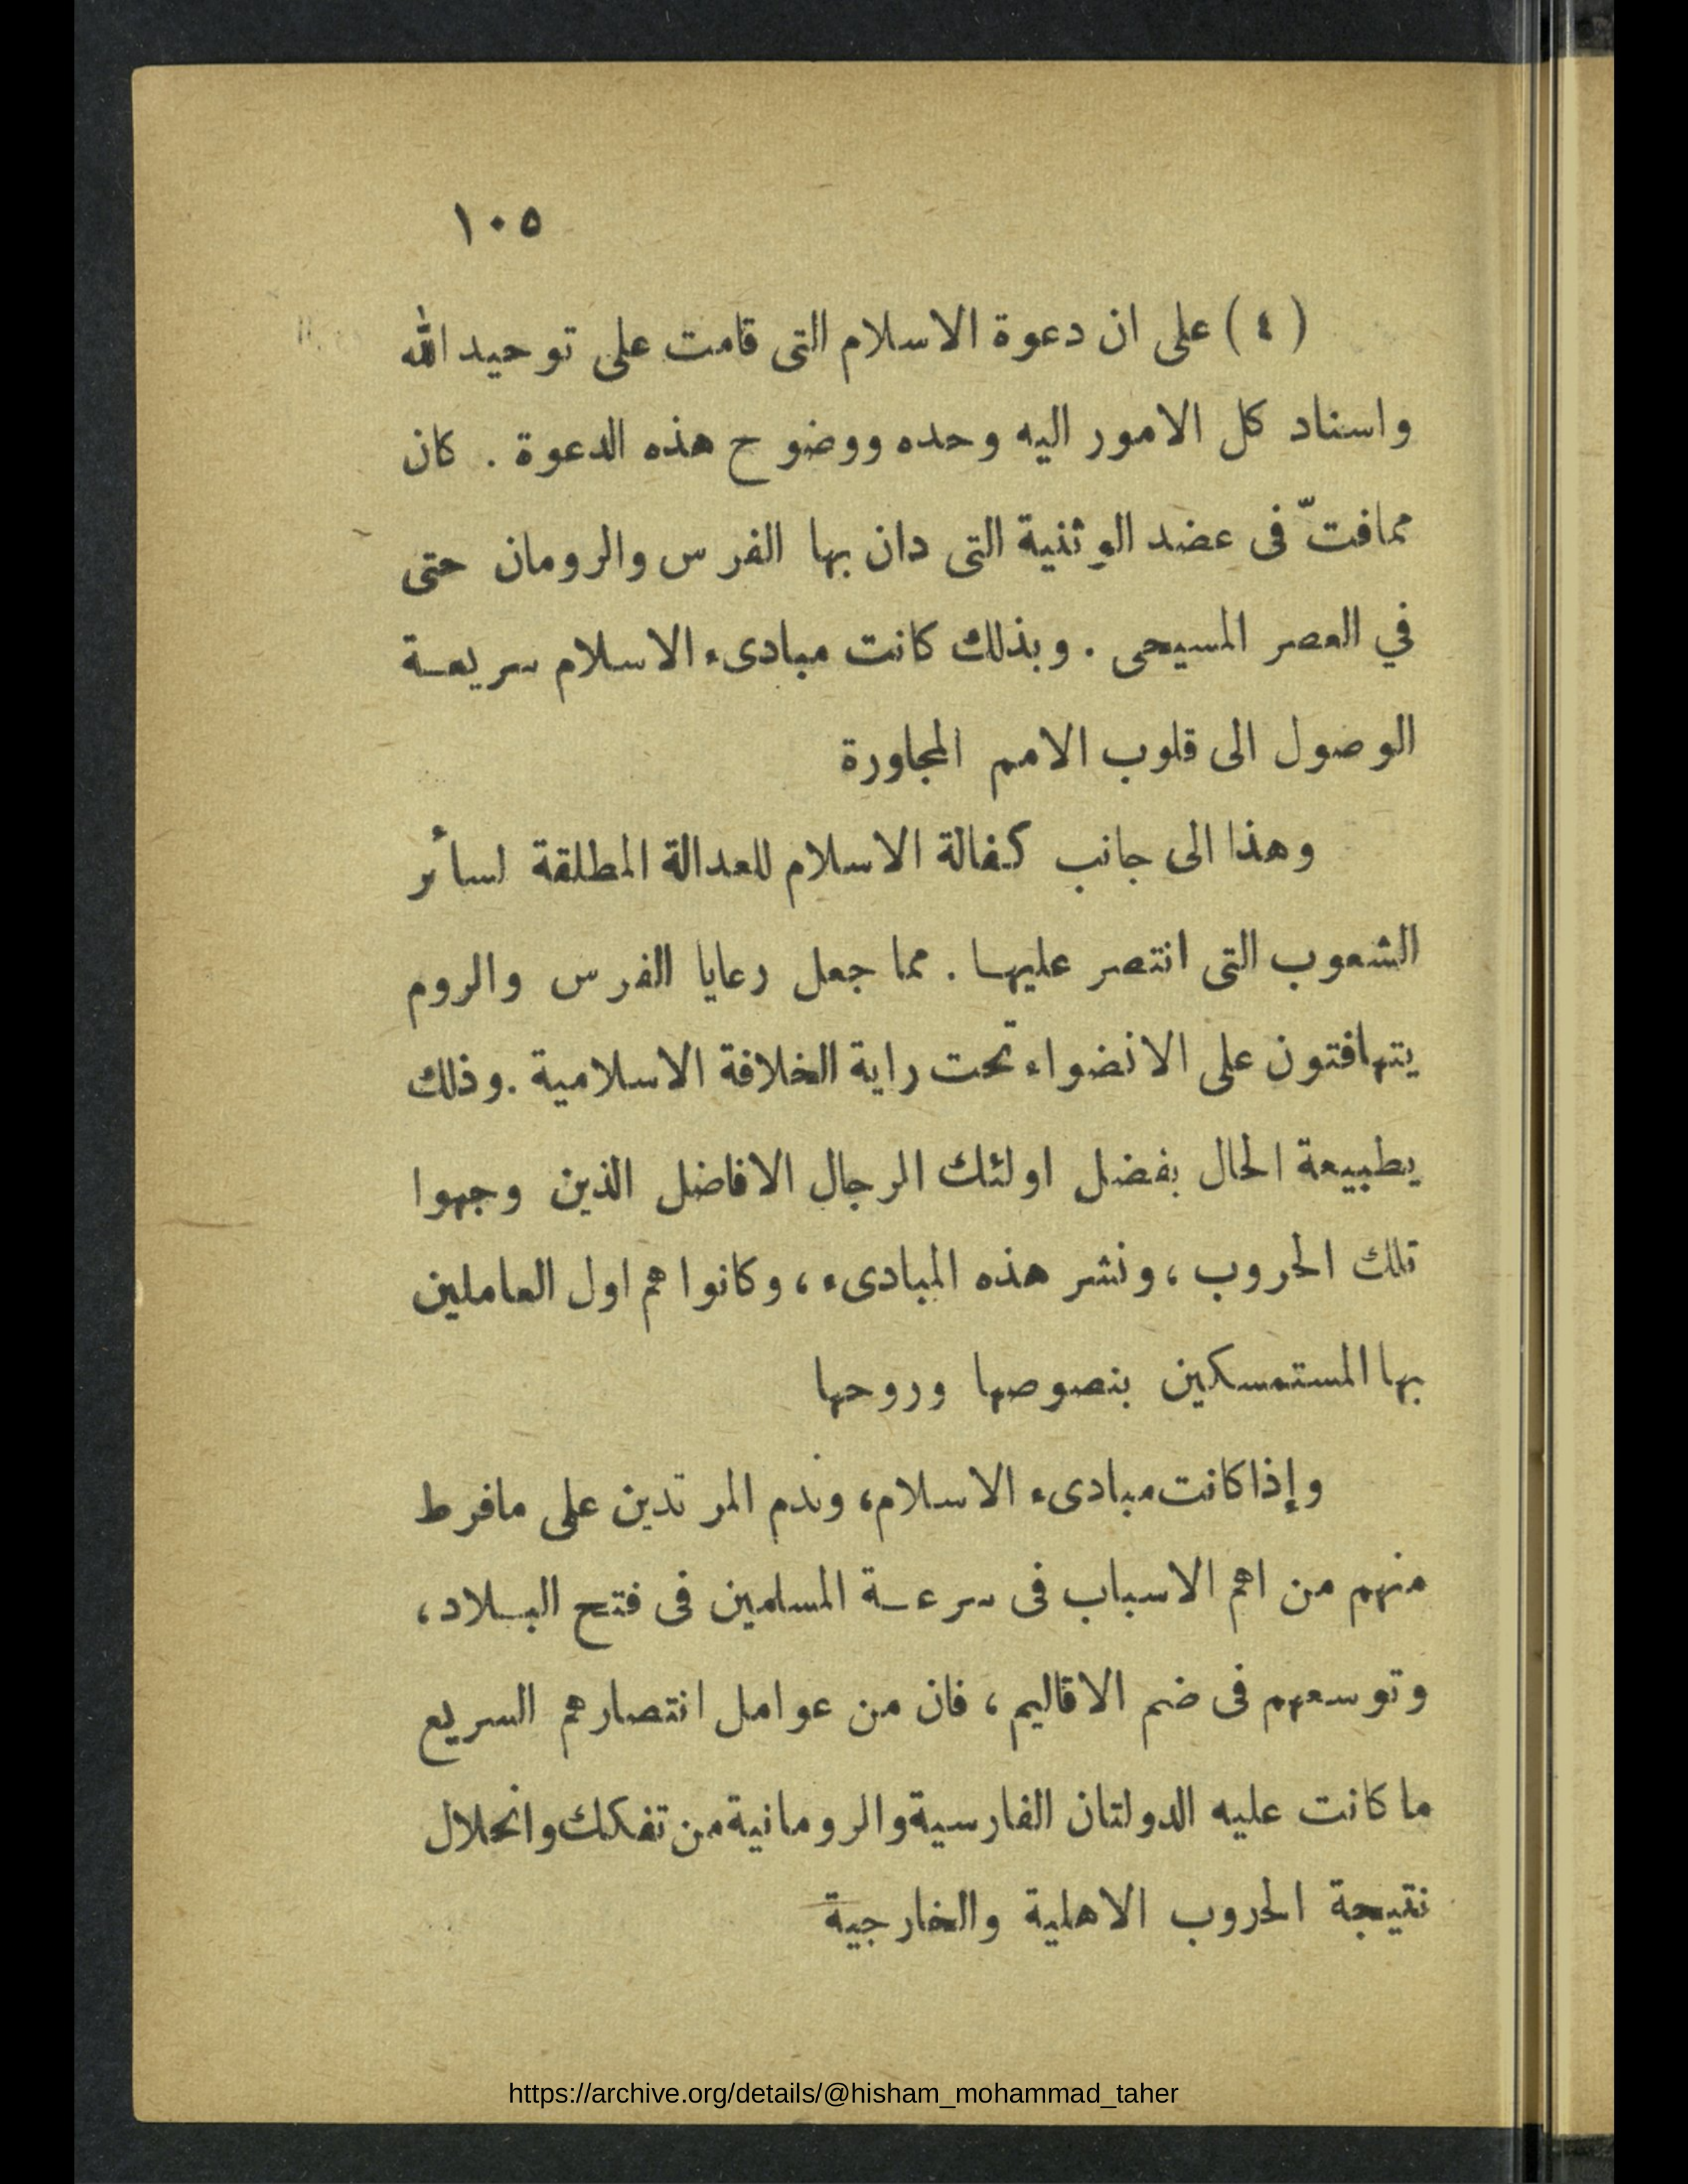 ١٠٥
(٤) على ان دعوة الاسلام التى قامت على توحيد الله
واسناد كل الامور اليه وحده ووضوح هذه الدعوة . كان
ممافتّ فى عضد الوثنية التى دان بها الفرس والرومان حتى
في العصر المسيحى . وبذلك كانت مبادىء الاسلام سريعة
الوصول الى قلوب الامم المجاورة
وهذا الى جانب كفالة الاسلام للعدالة المطلقة لسائر
الشعوب التى انتصر عليها . مما جعل رعايا الفرس والروم
يتهافتون على الانضواء تحت راية الخلافة الاسلامية . وذلك
يطبيعة الحال بفضل اولئك الرجال الافاضل الذين وجهوا
تلك الحروب ، ونشر هذه المبادىء ، وكانوا هم اول العاملين
بها المستمسكين بنصوصها وروحها
وإذا كانت مبادىء الاسلام، وندم المرتدين على مافرط
منهم من اهم الاسباب فى سرعة المسلمين فى فتح البلاد ،
وتوسعهم فى ضم الاقاليم ، فان من عوامل انتصارهم السريع
ما كانت عليه الدولتان الفارسية والرومانية من تفكك وانحلال
نتيجة الحروب الاهلية والخارجية
https://archive.org/details/@hisham_mohammad_taher